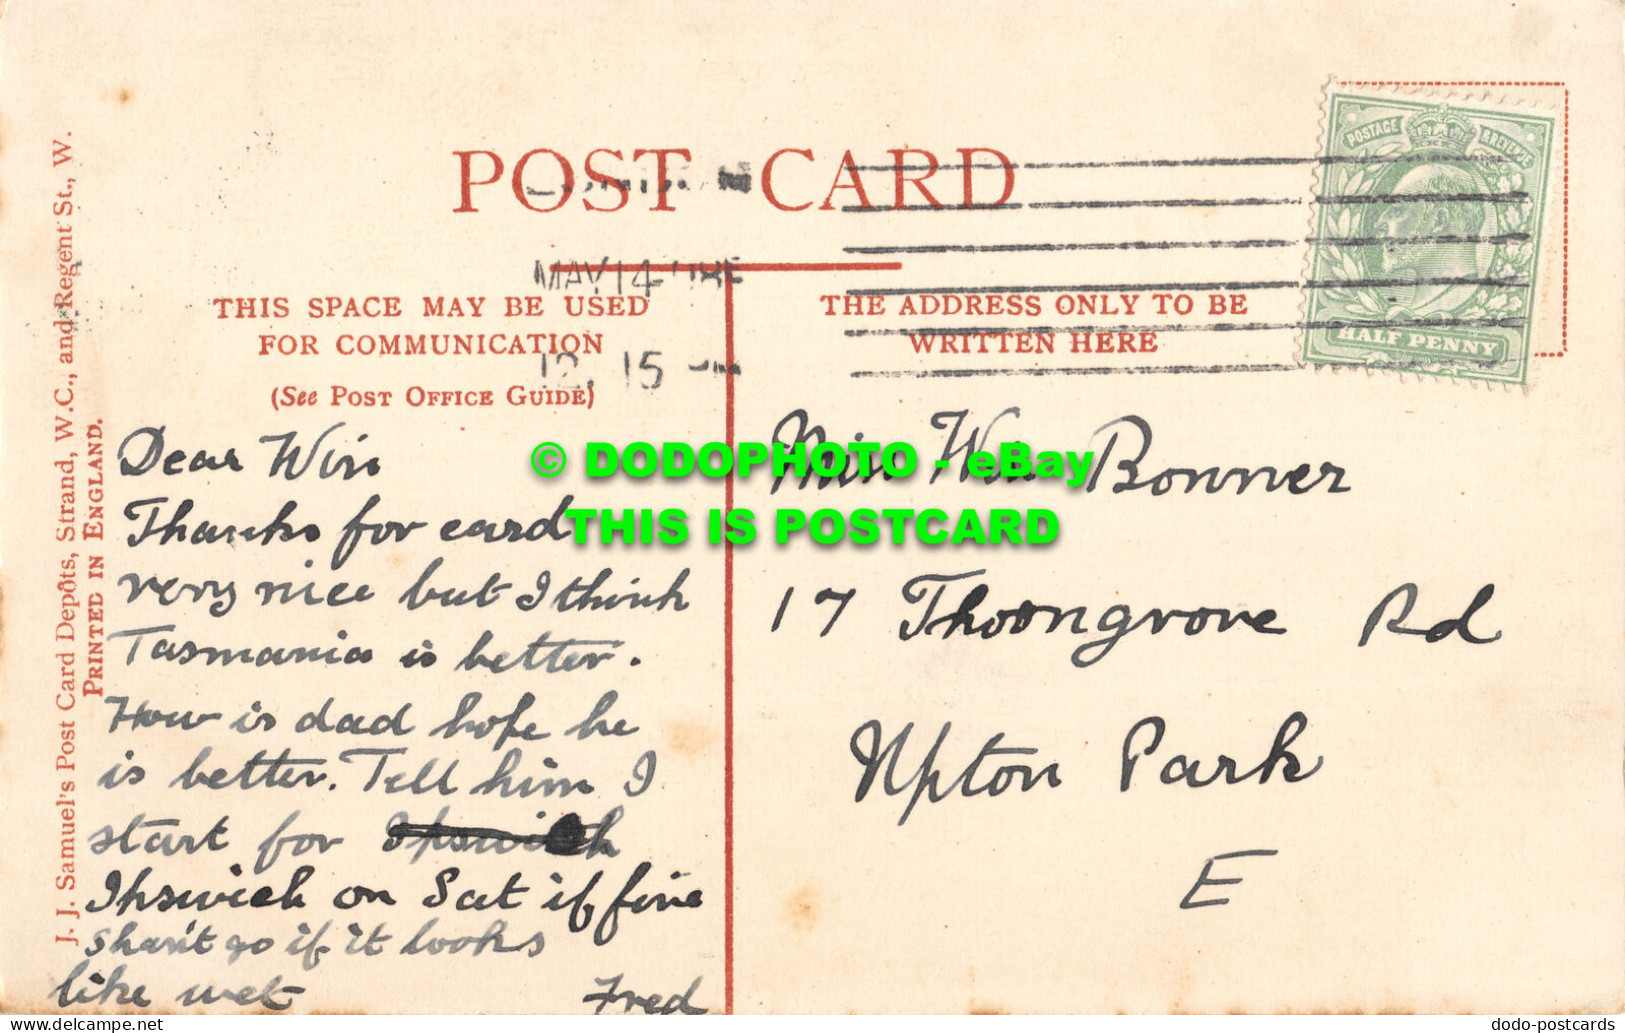 POST CARD
MAY 14
12. 15 PM
POSTAGE & REVENUE
HALF PENNY
THIS SPACE MAY BE USED
FOR COMMUNICATION
(See POST OFFICE GUIDE)
THE ADDRESS ONLY TO BE
WRITTEN HERE
J. J. Samuel's Post Card Depôts, Strand, W.C., and Regent St., W.
PRINTED IN ENGLAND.
Dear Win
Thanks for card
very nice but I think
Tasmania is better.
How is dad hope he
is better. Tell him I
start for Ipswich
Ipswich on Sat if fine
Shan't go if it looks
like wet Fred
Miss Win Bonner
17 Thoongrove Rd
Upton Park
E
© DODOPHOTO - eBay
THIS IS POSTCARD
dodo-postcards